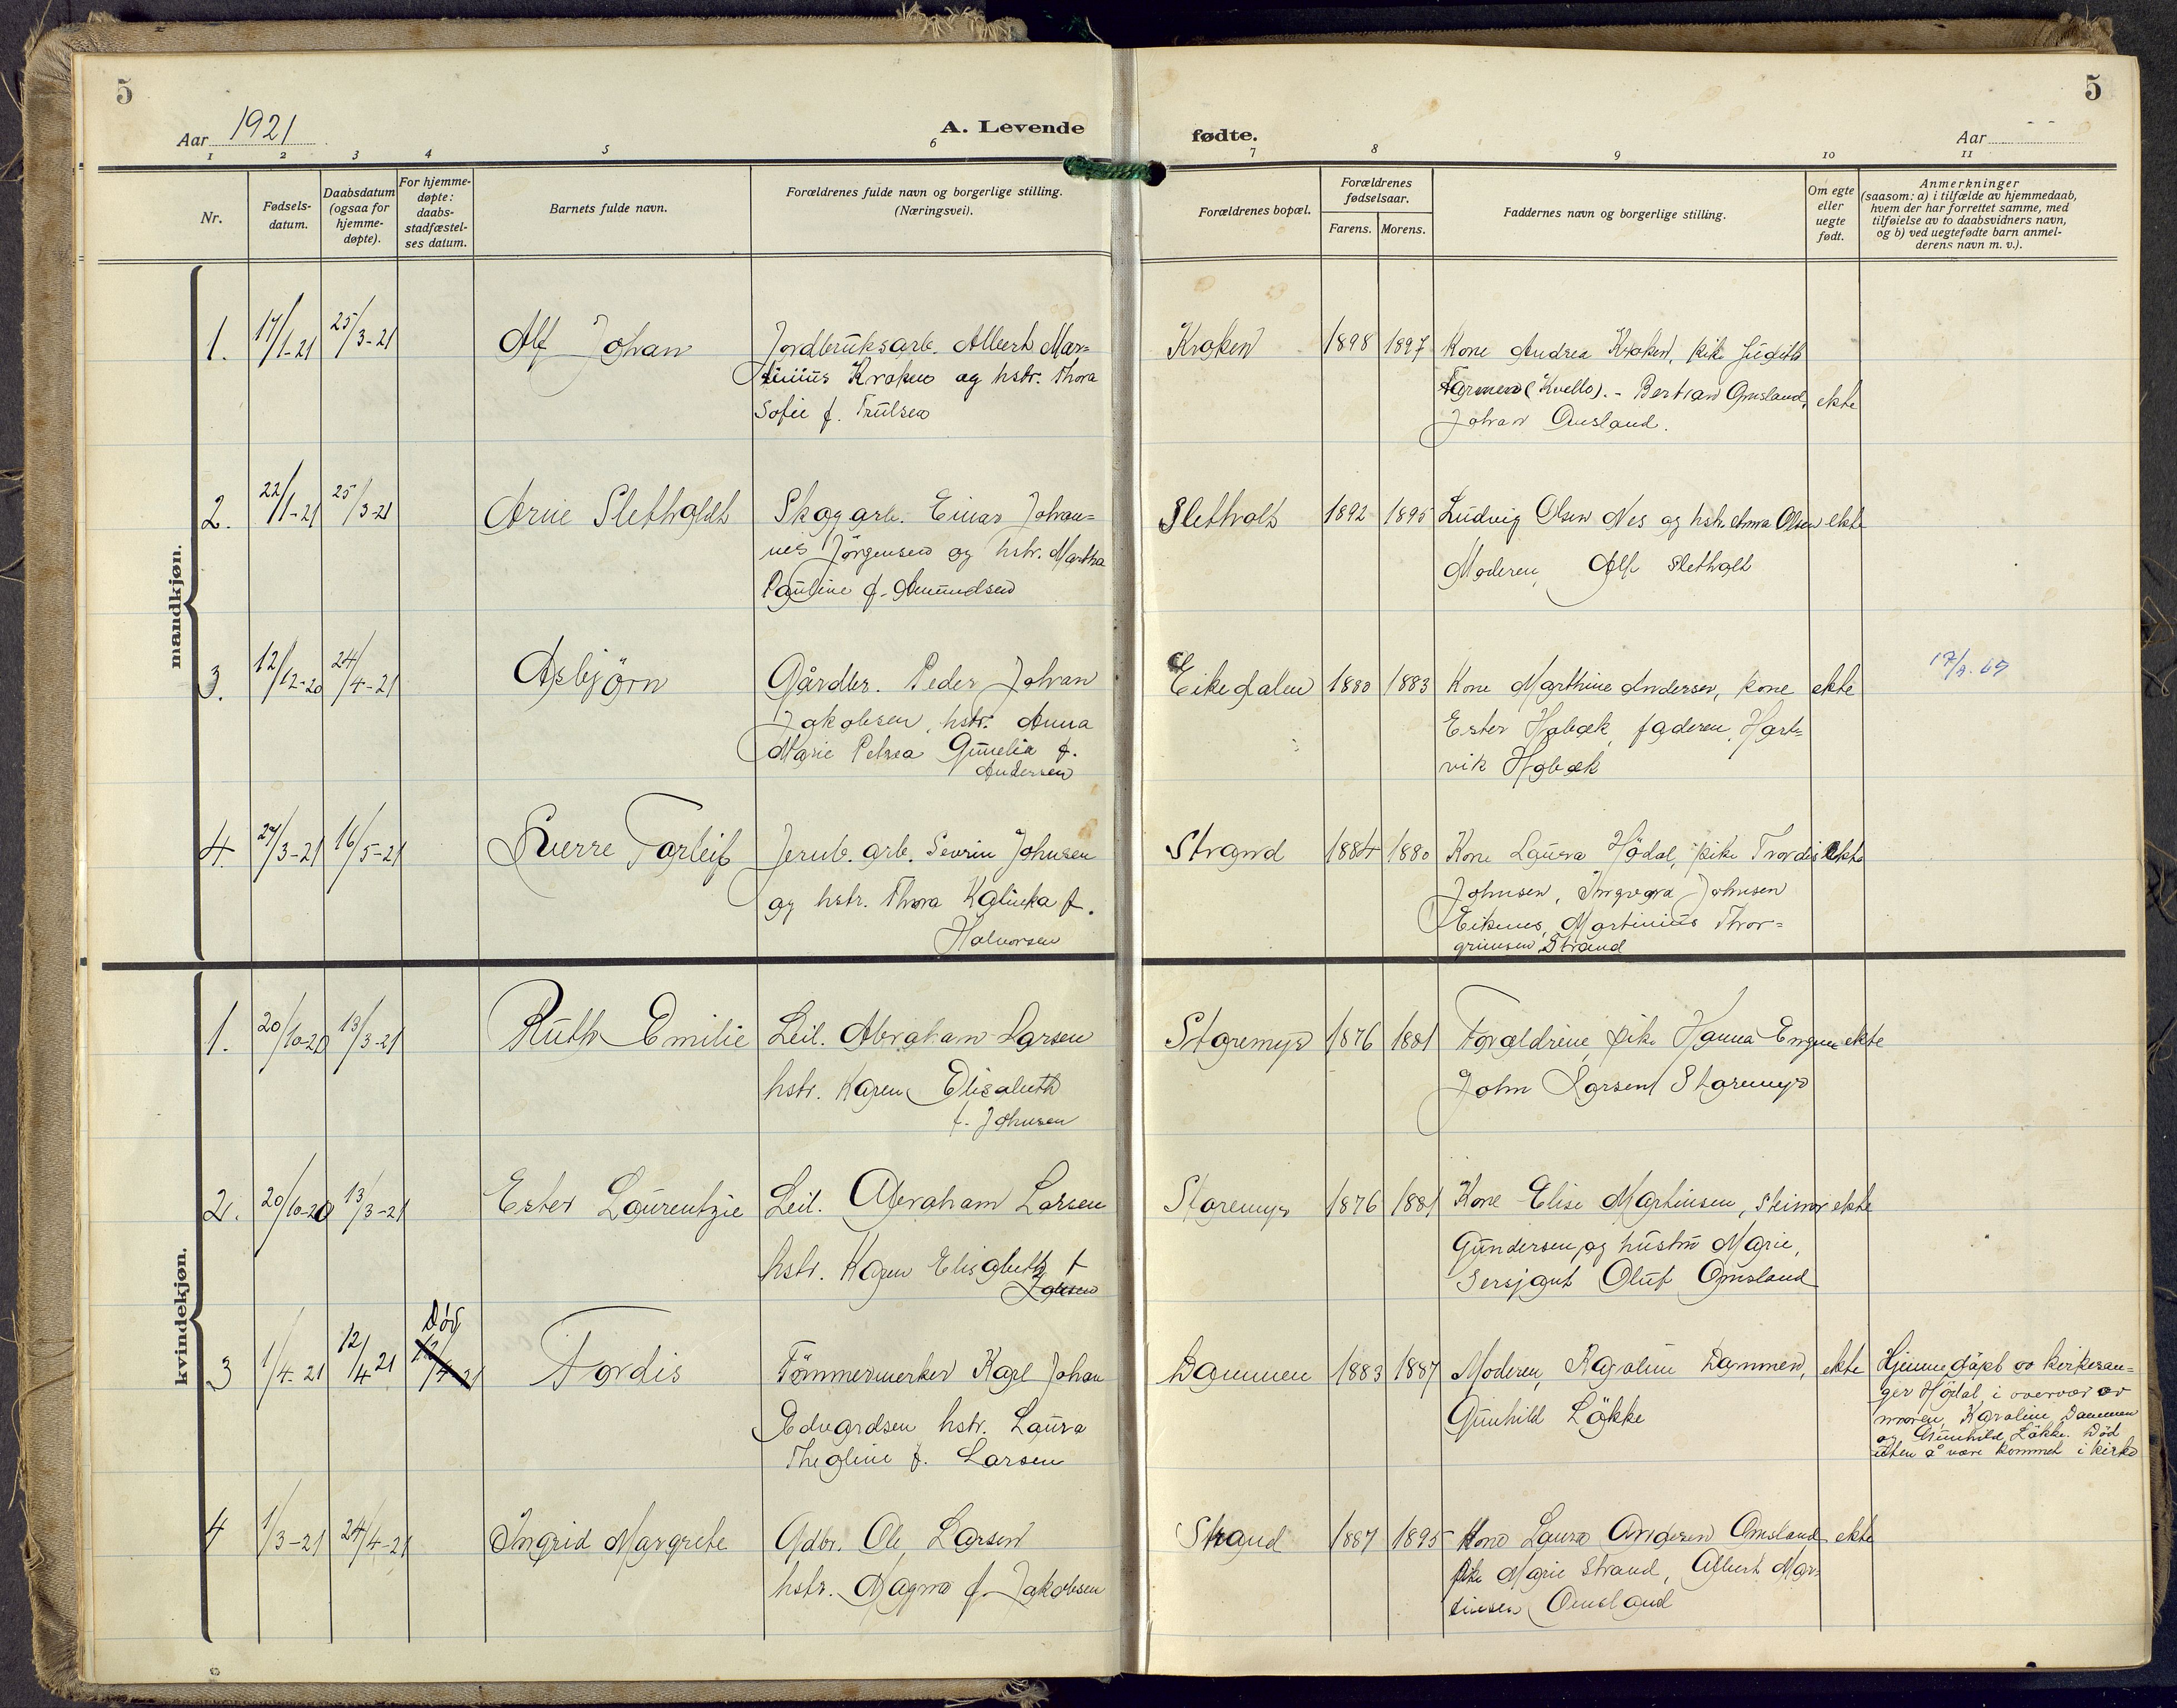 5
5
Aar 1921
A. Levende
fødte.
Aar
1 2 3 4 5 6 7 8 9 10 11
Nr.
Fødsels-
datum.
Daabsdatum
(ogsaa for
hjemme-
døpte).
For hjemme-
døpte:
daabs-
stadfæstel-
ses datum.
Barnets fulde navn.
Forældrenes fulde navn og borgerlige stilling.
(Næringsvei).
Forældrenes bopæl.
Forældrenes
fødselsaar.
Farens. Morens.
Faddernes navn og borgerlige stilling.
Om egte
eller
uegte
født.
Anmerkninger
(saasom: a) i tilfælde av hjemmedaab,
hvem der har forrettet samme, med
tilføielse av to daabsvidners navn,
og b) ved uegtefødte barn anmel-
derens navn m. v.).
mandkjøn.
1. 17/1-21 25/3-21 Alf Johan
Jordbruksarb. Albert Mar-
tinius Kroken og hstr. Thora
Sofie f. Trulsen
Kroken 1898 1897
Kone Andrea Kroken, pike Judith
(Kvello). - Bertian Omsland,
Johan Omsland.
ekte
2. 22/1-21 25/3-21 Arne Sletholt
Skogarb. Einar Johan-
nes Jörgensen og hstr. Martha
Pauline f. Amundsen
Sletholt 1892 1895
Ludvig Olsen Nes og hstr. Anna Olsen
Moderen, Alf Sletholt
ekte
3. 12/12-20 24/4-21 Asbjörn
Gårdbr. Peder Johan
Jakobsen, hstr. Anna
Marie Petrea Gunelia f.
Andersen
Eikedalen 1880 1883
Kone Marthine Andersen, kone
Ester Hobæk, faderen, Hart-
vik Hobæk
ekte
4. 27/3-21 16/5-21 Sverre Torleif
Jernb. arb. Sevrin Johnsen
og hstr. Thora Kalinka f.
Halvorsen
Strand 1884 1880
Kone Laura Hödal, pike Tvordis
Johnsen, Ingvara Johnsen
Eiknes, Martinius Thor-
grimsen Strand
ekte
kvindekjøn.
1. 20/10-20 13/3-21 Ruth Emilie
Leil. Abraham Larsen
hstr. Karen Elisabeth
f. Johnsen
Storemyr 1876 1881
Forældrene, pike Hanna
John Larsen Storemyr
ekte
2. 20/10-20 13/3-21 Ester Laurentzie
Leil. Abraham Larsen
hstr. Karen Elisabeth f
Storemyr 1876 1881
Kone Elise Martinsen, Steinar
Gundersen og hustru Marie,
Sersjant Oluf Omsland
ekte
3 1/4-21 12/4 21 Död
12/4-21
Tordis
Tömmermerker Karl Johan
Edvardsen hstr. Laura
Theoline f. Larsen
Dammen 1883 1887
Moderen, Karoline Dammen,
Gunhild Lökke
ekte
Hjemmedöpt av kirkesan-
ger Hödal i overvær av
moren, Karoline Dammen
og Gunhild Lökke. Död
uten å være kommet i kirke
4 1/3-21 24/4-21 Ingrid Margrete
Gdbr. Ole Larsen
hstr. Magna f. Jakobsen
Strand 1887 1895
Kone Laura Andersen Omsland
pike Marie Strand, Albert Mar-
tinsen Omsland
ekte